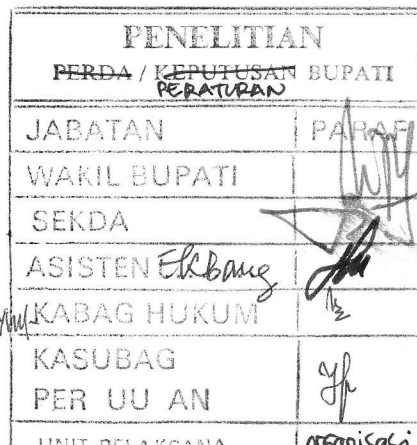 PENELITIAN
PERDA / KEPUTUSAN BUPATI
PERATURAN
JABATAN PARAF
WAKIL BUPATI
SEKDA
ASISTEN Ekbang
KABAG HUKUM
KASUBAG
PER UU AN
UNIT PELAKSANA organisasi